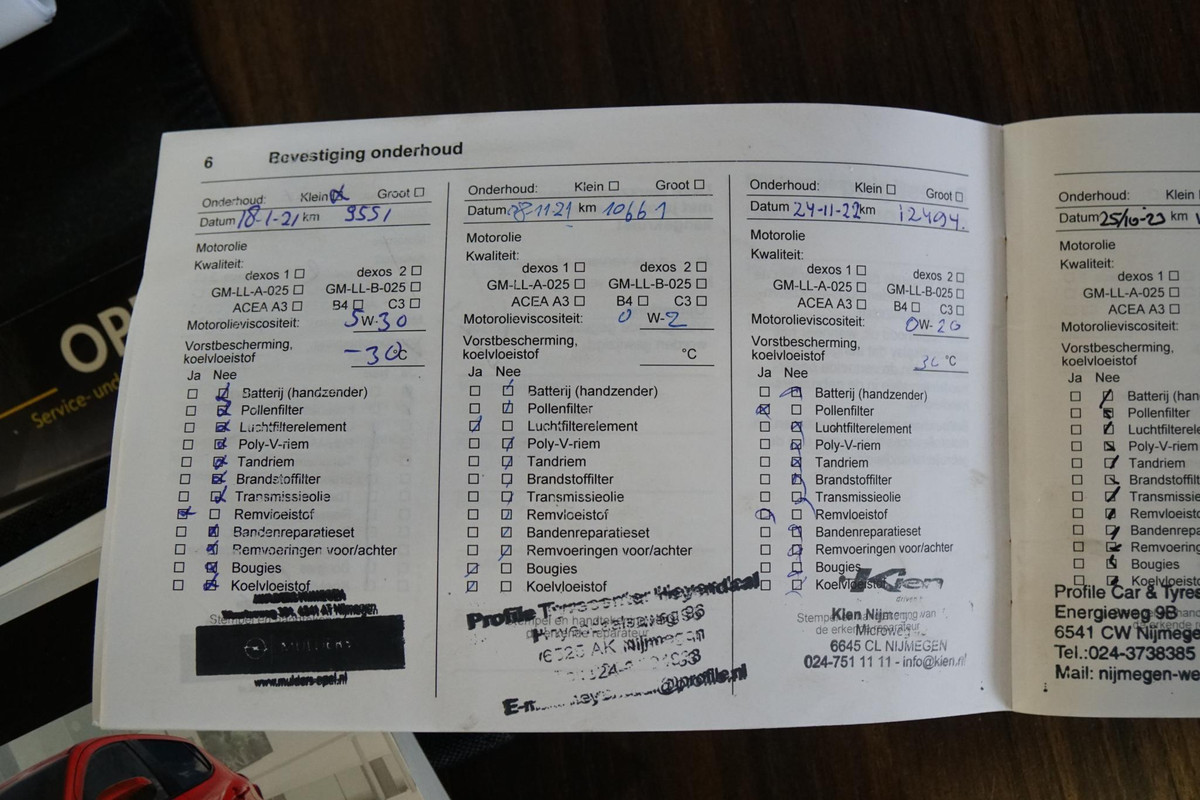 OP
Service- und
6 Bevestiging onderhoud
Onderhoud: Klein Groot
Datum 18-1-21 km 9551
Motorolie
Kwaliteit:
dexos 1 dexos 2
GM-LL-A-025 GM-LL-B-025
ACEA A3 B4 C3
Motorolieviscositeit: 5W-30
Vorstbescherming,
koelvloeistof -30°C
Ja Nee
Batterij (handzender)
Pollenfilter
Luchtfilterelement
Poly-V-riem
Tandriem
Brandstoffilter
Transmissieolie
Remvloeistof
Bandenreparatieset
Remvoeringen voor/achter
Bougies
Koelvloeistof
6541 AT Nijmegen
Mulders
www.mulders-opel.nl
Onderhoud: Klein Groot
Datum 08-11-21 km 10661
Motorolie
Kwaliteit:
dexos 1 dexos 2
GM-LL-A-025 GM-LL-B-025
ACEA A3 B4 C3
Motorolieviscositeit: 0 W-2
Vorstbescherming,
koelvloeistof °C
Ja Nee
Batterij (handzender)
Pollenfilter
Luchtfilterelement
Poly-V-riem
Tandriem
Brandstoffilter
Transmissieolie
Remvloeistof
Bandenreparatieset
Remvoeringen voor/achter
Bougies
Koelvloeistof
Profile Tyrecenter Heyendaal
Stempel en
reparateur
6525 AK Nijmegen
@profile.nl
Onderhoud: Klein Groot
Datum 24-11-22 km 12494.
Motorolie
Kwaliteit:
dexos 1 dexos 2
GM-LL-A-025 GM-LL-B-025
ACEA A3 B4 C3
Motorolieviscositeit: 0W-20
Vorstbescherming,
koelvloeistof 30 °C
Ja Nee
Batterij (handzender)
Pollenfilter
Luchtfilterelement
Poly-V-riem
Tandriem
Brandstoffilter
Transmissieolie
Remvloeistof
Bandenreparatieset
Remvoeringen voor/achter
Bougies
Koelvloeistof
Kien
Kien Nijmegen
de erkende reparateur
Microweg
6645 CL NIJMEGEN
024-751 11 11 - info@kien.nl
Onderhoud:
Datum 25/10-23 km
Motorolie
Kwaliteit:
dexos 1
GM-LL-A-025
ACEA A3
Motorolieviscositeit:
Vorstbescherming,
koelvloeistof
Ja Nee
Batterij (han
Pollenfilter
Luchtfilterele
Poly-V-riem
Tandriem
Brandstoffilte
Transmissie
Remvloeisto
Bandenrepa
Remvoering
Bougies
Koelvloeisto
Profile Car & Tyres
Energieweg 9B
6541 CW Nijmege
Tel.:024-3738385
Mail: nijmegen-we